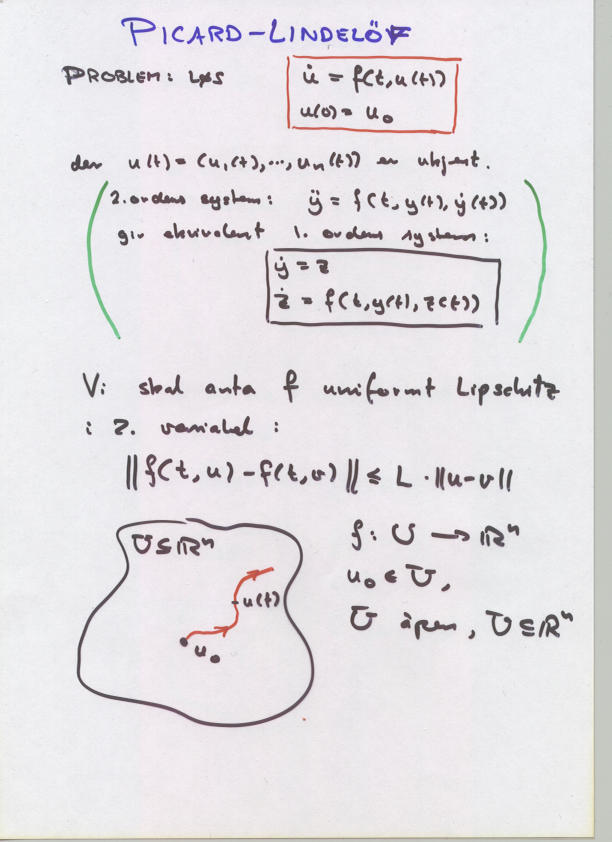 PICARD-LINDELÖF
PROBLEM: LØS
u̇ = f(t,u(t))
u(0) = u₀
der u(t) = (u₁(t),...,uₙ(t)) er ukjent.
2. ordens system: ÿ = f(t, y(t), ẏ(t))
gir ekvivalent 1. ordens system:
ẏ = z
ż = f(t, y(t), z(t))
Vi skal anta f uniformt Lipschitz
i 2. variabel:
||f(t,u) - f(t,v)|| ≤ L · ||u-v||
U ⊆ ℝⁿ
u(t)
u₀
f: U → ℝⁿ
u₀ ∈ U,
U åpen, U ⊆ ℝⁿ